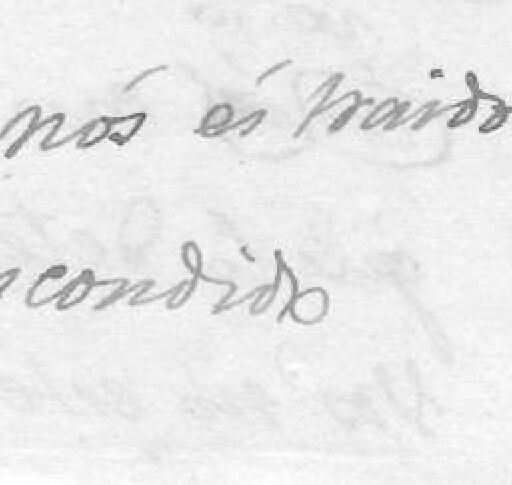 nós és traido
scondido